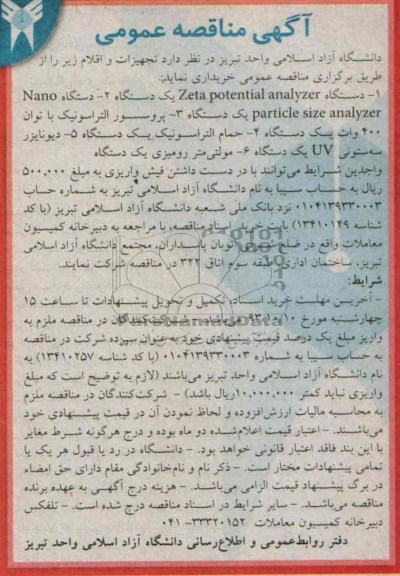 آگهی مناقصه عمومی
دانشگاه آزاد اسلامی واحد تبریز در نظر دارد تجهیزات و اقلام زیر را از
طریق برگزاری مناقصه عمومی خریداری نماید:
۱- دستگاه Zeta potential analyzer یک دستگاه ۲- دستگاه Nano
particle size analyzer یک دستگاه ۳- پروسسور التراسونیک با توان
۴۰۰ وات یک دستگاه ۴- حمام التراسونیک یک دستگاه ۵- دیونایزر
سه‌ستونی UV یک دستگاه ۶- مولتی‌متر رومیزی یک دستگاه
واجدین شرایط می‌توانند با در دست داشتن فیش واریزی به مبلغ ۵۰۰,۰۰۰
ریال به حساب سیبا به نام دانشگاه آزاد اسلامی تبریز به شماره حساب
۰۱۰۴۱۳۹۳۳۰۰۰۳ نزد بانک ملی شعبه دانشگاه آزاد اسلامی تبریز (با کد
شناسه ۱۳۴۱۰۱۴۹) بابت خرید اسناد مناقصه، با مراجعه به دبیرخانه کمیسیون
معاملات واقع در ضلع اتوبان پاسداران، مجتمع دانشگاه آزاد اسلامی
تبریز، ساختمان اداری، طبقه سوم اتاق ۳۲۲ در مناقصه شرکت نمایند.
شرایط:
- آخرین مهلت خرید اسناد، تکمیل و تحویل پیشنهادات تا ساعت ۱۵
چهارشنبه مورخ ۹۳/۱۰/۱۰ می‌باشد. - شرکت‌کنندگان در مناقصه ملزم به
واریز مبلغ یک درصد قیمت پیشنهادی خود به عنوان سپرده شرکت در مناقصه
به حساب سیبا به شماره ۰۱۰۴۱۳۹۳۳۰۰۰۳ (با کد شناسه ۱۳۴۱۰۲۵۷) به
نام دانشگاه آزاد اسلامی واحد تبریز می‌باشند (لازم به توضیح است که مبلغ
واریزی نباید کمتر ۱۰,۰۰۰,۰۰۰ریال باشد) - شرکت‌کنندگان در مناقصه ملزم
به محاسبه مالیات ارزش‌افزوده و لحاظ نمودن آن در قیمت پیشنهادی خود
می‌باشند. - اعتبار قیمت اعلام‌شده دو ماه بوده و درج هرگونه شرط مغایر
با این بند فاقد اعتبار قانونی خواهد بود. - دانشگاه در رد یا قبول هر یک یا
تمامی پیشنهادات مختار است. - ذکر نام و نام‌خانوادگی مقام دارای حق امضاء
در برگ پیشنهاد قیمت الزامی می‌باشد. - هزینه درج آگهی به عهده برنده
مناقصه می‌باشد. - سایر شرایط در اسناد مناقصه درج شده است. - تلفکس
دبیرخانه کمیسیون معاملات ۳۳۳۲۰۱۵۲-۰۴۱
دفتر روابط‌عمومی و اطلاع‌رسانی دانشگاه آزاد اسلامی واحد تبریز